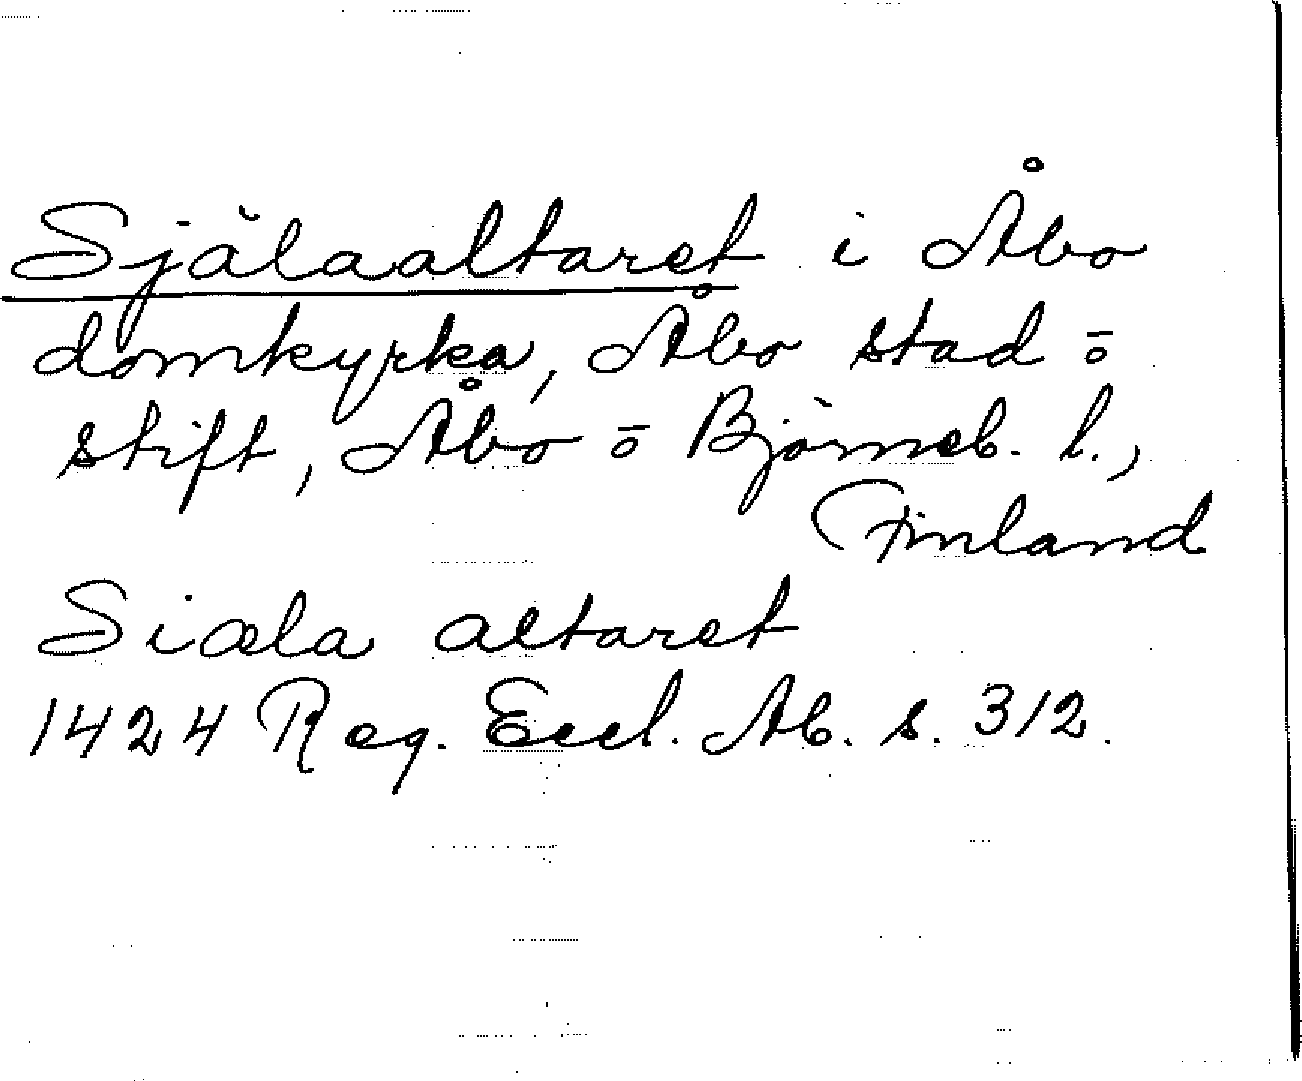 Själaaltaret i Åbo
domkyrka, Åbo stad o
stift, Åbo o Björneb. l.,
Finland
Siæla altaret
1424 Reg. Eccl. Ab. s. 312.